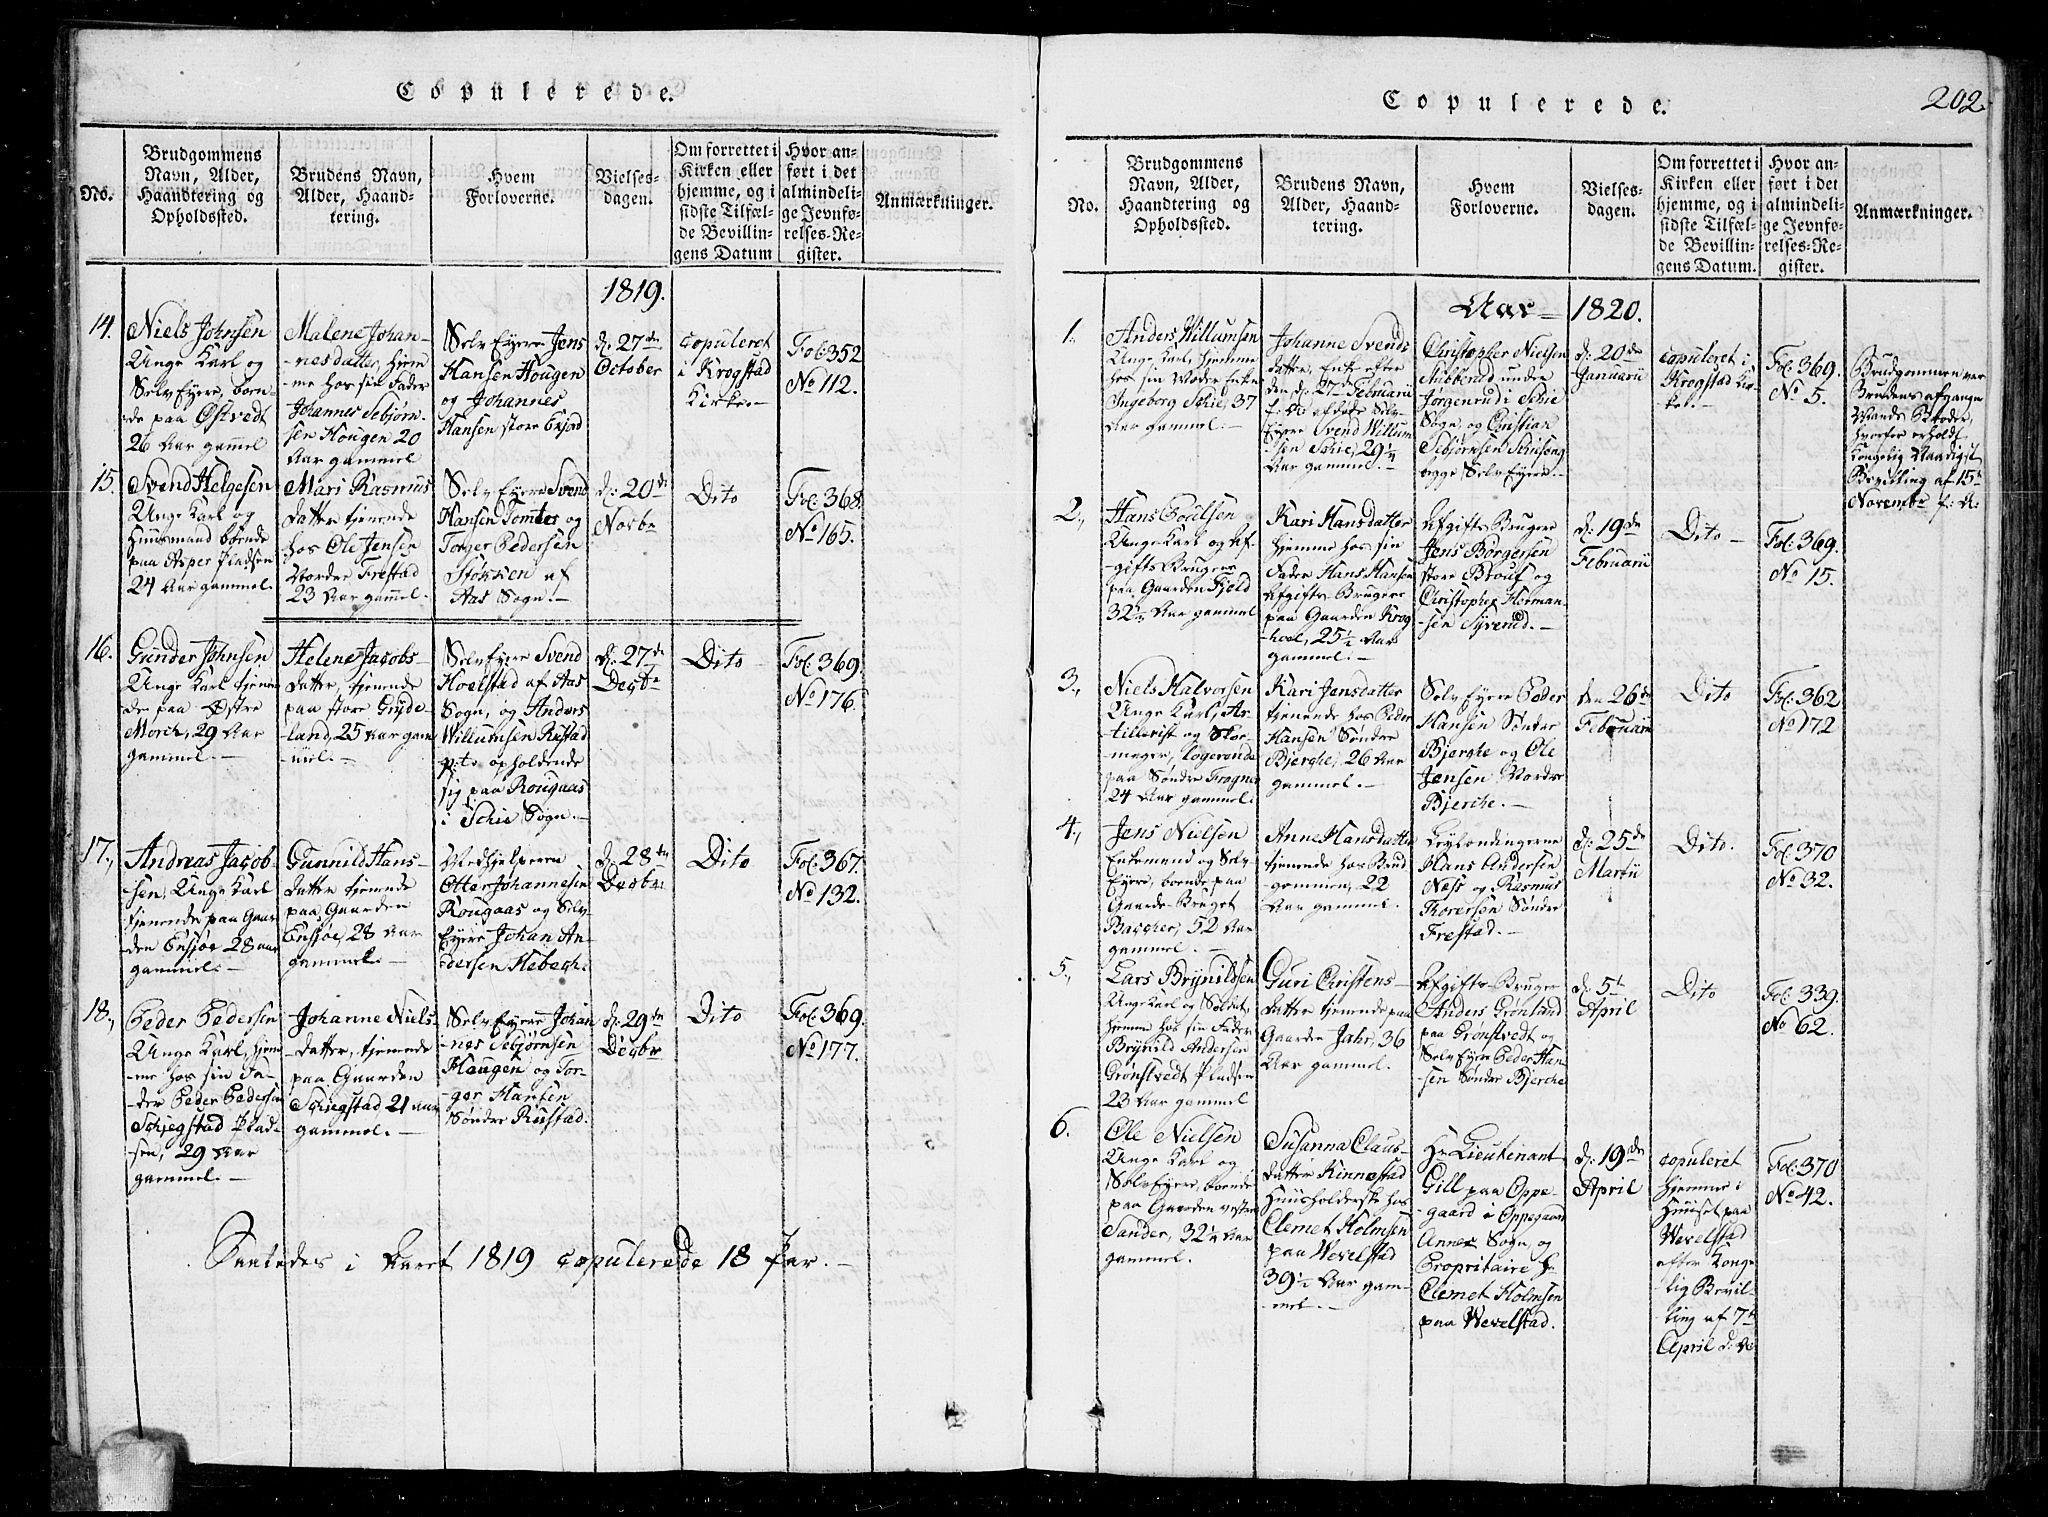 Copulerede.
No.
Brudgommens
Navn, Alder,
Haandtering og
Opholdssted.
Brudens Navn,
Alder, Haand-
tering.
Hvem
Forloverne.
Vielses-
dagen.
Om forrettet i
Kirken eller
hjemme, og i
sidste Tilfæl-
de Bevillin-
gens Datum
Hvor an-
ført i det
almindeli-
ge Jevnfø-
relses-Re-
gister.
Anmærkninger.
1819.
14.
Niels Johnsen
Unge Karl og
Selv Eyere, boen-
de paa Østvedt
26 Aar gammel
Malene Johan-
nesdatter, hjem-
me hos sin Fader
Johannes Sebjørn-
sen Hougen 20
Aar gammel
Selv Eyere Jens
Hansen Hougen
og Johannes
Hansen store
d. 27de
October
copuleret
i Krogstad
Kirke.-
Fol: 352
No 112.
15.
Svend Helgesen
Unge Karl og
Huusmand boende
paa Asper Pladsen
24 Aar gammel.
Mari Rasmus
datter tjenende
hos Ole Jensen
Nordre Frestad
23 Aar gammel.-
Selv Eyere Svend
Hansen Tomter og
Torger Pedersen
Støkken af
Aas Sogn.-
d. 20de
Novbr
Dito
Fol: 368.
No 165.
16.
Gunder Johnsen
Unge Karl tjenen-
de paa Østre
Morch, 29 Aar
gammel.-
Helene Jacobs-
datter, tjenende
paa store Gryde-
land, 25 Aar gam-
mel.-
Selv Eyere Svend
Hoelstad af Aas
Sogn, og Anders
Willumsen Rustad
p: t: opholdende
sig paa Rougaas
i Schie Sogn.-
d. 27de
Decbr
Dito
Fol: 369.
No 176.
17.,
Andreas Jacob-
sen, Unge Karl
tjenende paa Gaar-
den Ensjøe 28 aar
gammel.-
Gunnild Hans-
datter tjenende
paa Gaarden
Ensjøe, 28 Aar
gammel.-
Medhjelperen
Otter Johannesen
Rougaas og Selv
Eyere Johan An-
dersen Hebech.
d. 28de
Decbr
Dito
Fol: 367.
No 132.
18.,
Peder Pedersen
Unge Karl, hjem-
me hos sin Fa-
der Peder Pedersen
Schjegstad Plad-
sen, 29 Aar
gammel.-
Johanne Niels-
datter, tjenende
paa Gaarden
Schjegstad 21 aar
gammel.-
Selv Eyere Johan-
nes Sebjørnsen
Haugen og Tor-
ger Hansen
Søndre Rustad.
d. 29de
Decbr
Dito
Fol: 369.
No 177.
Saaledes i Aaret 1819 copulerede 18 Par.-
Copulerede.
202.
No.
Brudgommens
Navn, Alder,
Haandtering og
Opholdssted.
Brudens Navn,
Alder, Haand-
tering.
Hvem
Forloverne.
Vielses-
dagen.
Om forrettet i
Kirken eller
hjemme, og i
sidste Tilfæl-
de Bevillin-
gens Datum.
Hvor an-
ført i det
almindeli-
ge Jevnfø-
relses-Re-
gister.
Anmærkninger.
Aar 1820.
1.,
Anders Willumsen
Unge Karl, hjemme
hos sin Moder Enke
Ingeborg Schie, 37
Aar gammel.-
Johanne Svends
datter, Enke efter
den d. 27de Februarii
f: A: afdøde Selv
Eyere Svend Willum-
sen Schie, 29 1/4
Aar gammel.-
Christopher Nielsen
Stubberud under
Jørgenrud i Schie
Sogn, og Christian
Sebjørnsen
begge Selv Eyere.-
d. 20de
Januarii
copuleret i
Krogstad Kir-
ket.-
Fol: 369.
No 5.
Brudgommen var
Brudens afgangne
Mands Broder,
hvorfor erholdt
Kongelig Naadigst
Bevilling af 15de
November f: A:
2.,
Hans Poulsen
Unge Karl og Af-
gifts Bruger
paa Gaarden Fjeld
32 1/2 Aar gammel
Kari Hansdatter
hjemme hos sin
Fader Hans Hansen
Afgifts Bruger
paa Gaarden Krog-
hoel, 25 1/2 Aar
gammel.-
Afgifts Bruger
Jens Børgersen
store Brouf og
Christopher Herman-
sen Syverud.-
d. 19de
Februarii
Dito -
Fol: 369.
No 15.
3.,
Niels Halvorsen
Unge Karl, Ar-
tillerist og Skoe-
mager, logerende
paa Søndre Frogner
24 Aar gammel.
Kari Jensdatter
tjenende hos Peder
Hansen Søndre
Bjerche, 26 Aar
gammel.-
Selv Eyere Peder
Hansen Søndre
Bjerche og Ole
Jensen Nordre
Bjerche.-
den 26de
Februarii
Dito
Fol: 362
No 172
4.,
Jens Nielsen
Enkemand og Selv
Eyere, boende paa
Gaarde-Bruget
Bascher, 52 Aar
gammel.-
Anne Hansdatter
tjenende hos Brud-
gommen, 22
Aar gammel.
Leylændingerne
Hans Andersen
Ness og Rasmus
Thorersen Søndre
Frestad.-
d. 25de
Martii
Dito.
Fol: 370
No 32.
5.,
Lars Brynildsen
Unge Karl og Soldat,
hjemme hos sin Fader
Brynild Andersen
Grønslvedt Pladsen
23 Aar gammel
Guri Christens-
datter tjenende paa
Gaarden Jahr, 36
Aar gammel.
Afgifts-Bruger
Anders Grønland
paa Grønslvedt og
Selv Eyere Peder Han-
sen Søndre Bjerche
d. 5te
April
Dito
Fol: 339.
No 62.
6.
Ole Nielsen
Unge Karl og
Selv Eyere, boende
paa Gaarden vestre
Sander, 32 1/4 Aar
gammel.
Susanna Claus-
datter Kinnestad
Huusholderske hos
Clemet Holmsen
paa Wevelstad
39 1/2 Aar gam-
mel.-
Hr Lieutinant
Gill paa Oppe-
gaard i Oppegaard
Annex Sogn, og
Propritaire Hr
Clemet Holmsen
paa Wevelstad.
d. 19de
April
copuleret
hjemme i
Huuset paa
Wevelstad
efter Konge-
lig Bevil-
ling af 7de
April d: A:
Fol: 370
No 42.